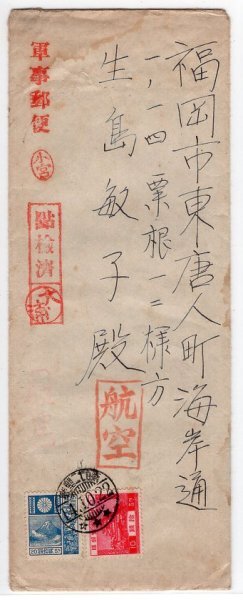 福岡市東唐人町海岸通
一ノ一四 粟根一二様方
生島敏子殿
軍事郵便
小宮
點検濟
航空
10.22